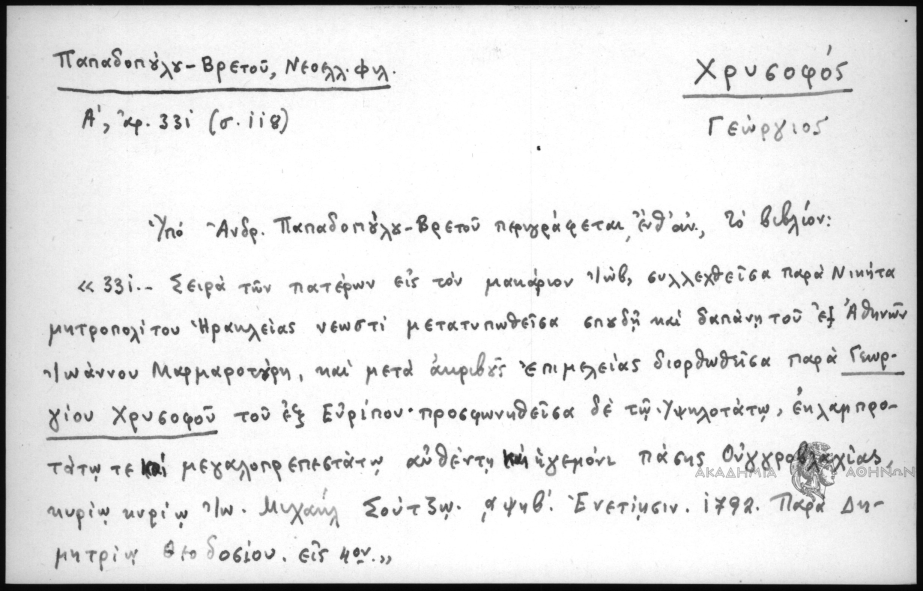 Παπαδοπούλου-Βρετοῦ, Νεοελλ. φιλ.
Χρυσοφός
Α', ἀρ. 331 (σ. 118)
Γεώργιος
Ὑπό Ἀνδρ. Παπαδοπούλου-Βρετοῦ περιγράφεται, ἔνθ' ἀν., τό βιβλίον:
«331.- Σειρά τῶν πατέρων εἰς τόν μακάριον Ἰώβ, συλλεχθεῖσα παρά Νικήτα
μητροπολίτου Ἡρακλείας νεωστί μετατυπωθεῖσα σπουδῇ καί δαπάνῃ τοῦ ἐξ Ἀθηνῶν
Ἰωάννου Μαρμαροτούρη, καί μετά ἀκριβοῦς ἐπιμελείας διορθωθεῖσα παρά Γεωρ-
γίου Χρυσοφοῦ τοῦ ἐξ Εὐρίπου· προσφωνηθεῖσα δέ τῷ Ὑψηλοτάτῳ, ἐκλαμπρο-
τάτῳ τε καί μεγαλοπρεπεστάτῳ αὐθέντῃ καί ἡγεμόνι πάσης Οὐγγροβλαχίας,
κυρίῳ κυρίῳ Ἰω. Μιχαήλ Σούτζῳ. ͵αψηβ'. Ἐνετίῃσιν. 1792. Παρά Δη-
μητρίῳ Θεοδοσίου. εἰς 4ον.»
ΑΚΑΔΗΜΙΑ ΑΘΗΝΩΝ